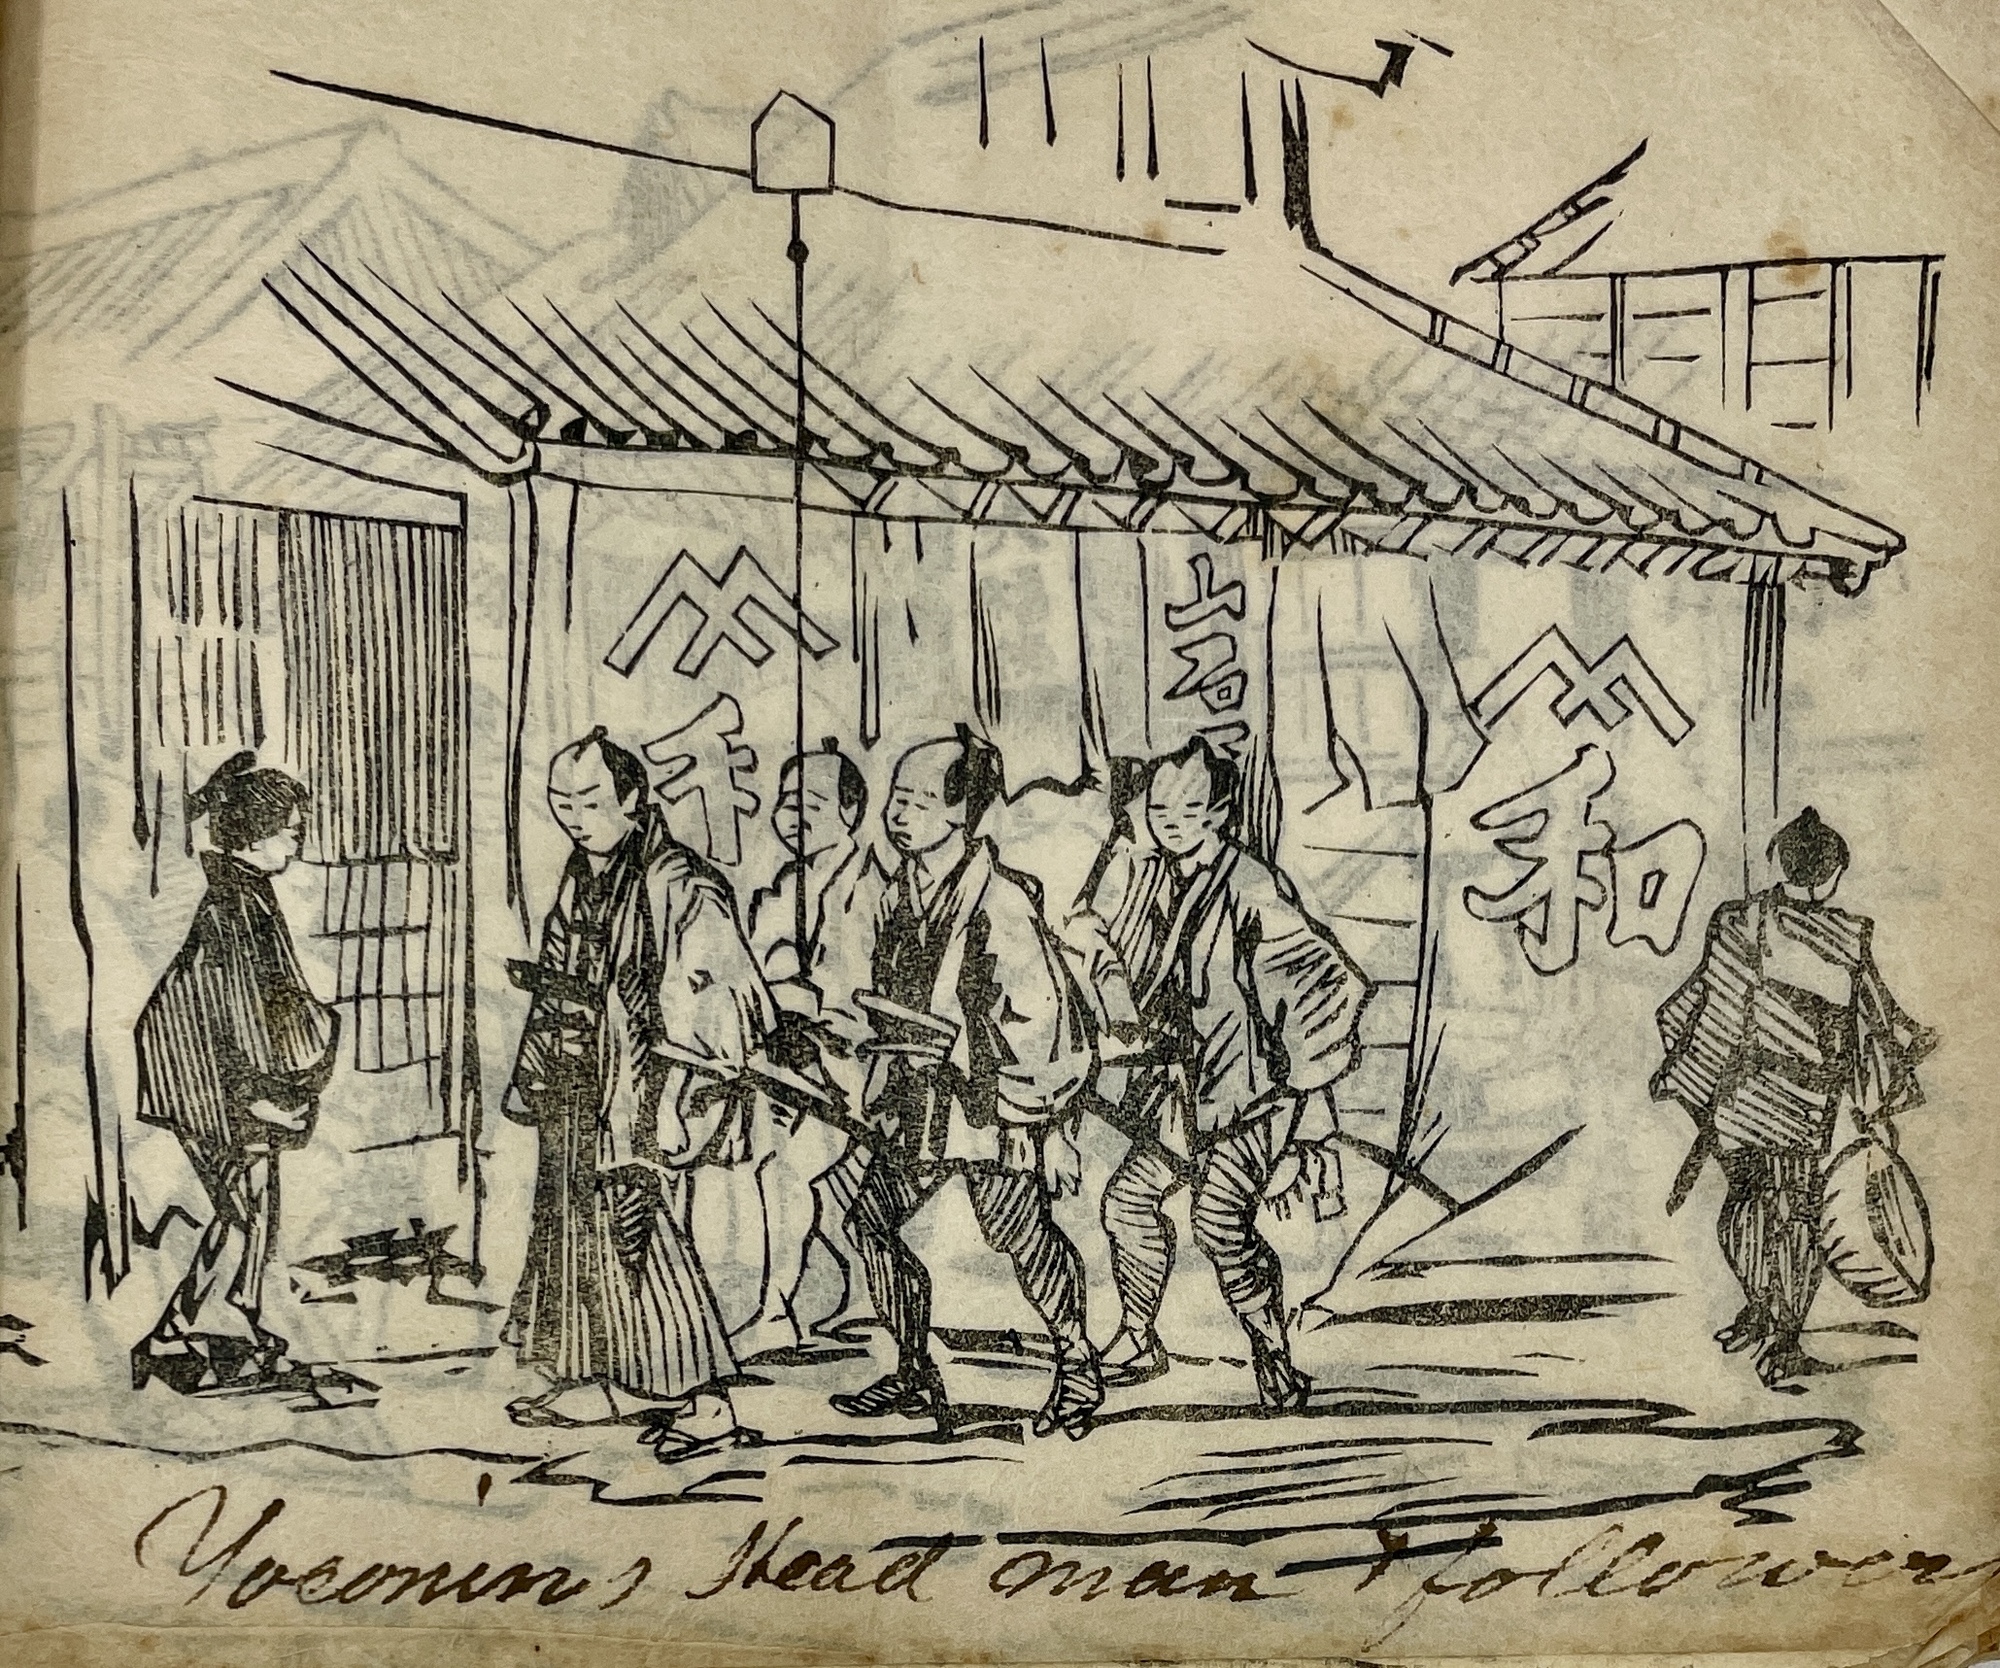 千
和
Yoconin's Head man + followers